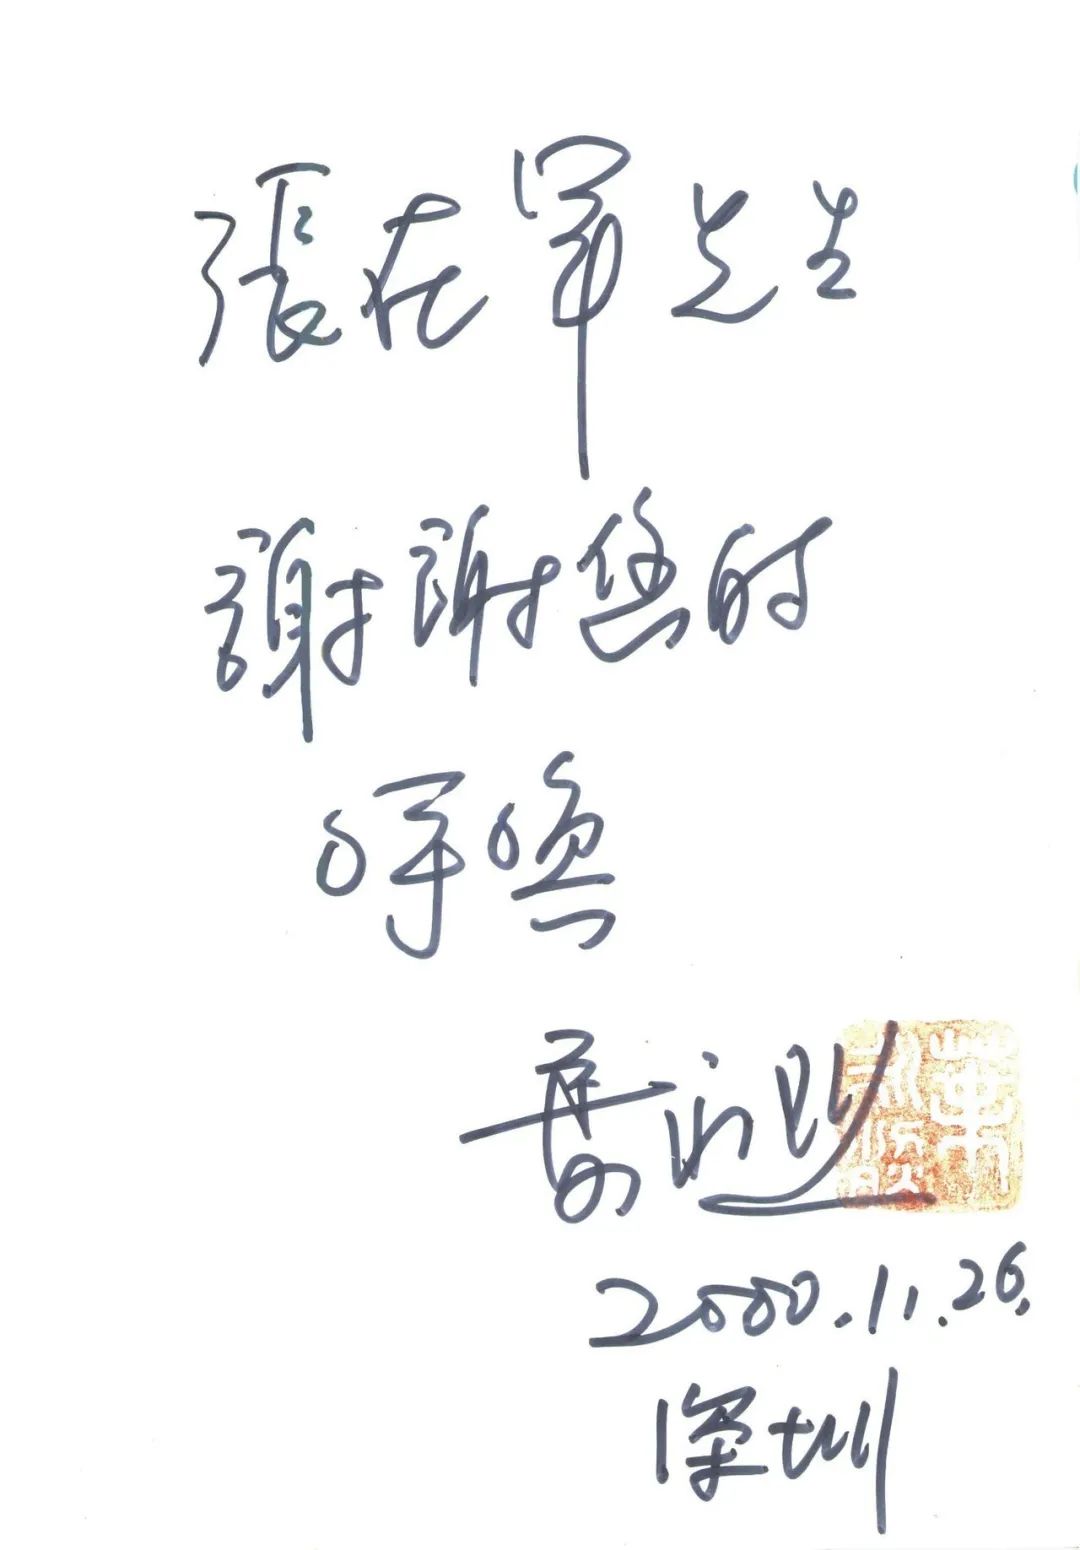 張在軍先生
謝謝您的
呼喚
葉永烈
2000.11.26.
深圳